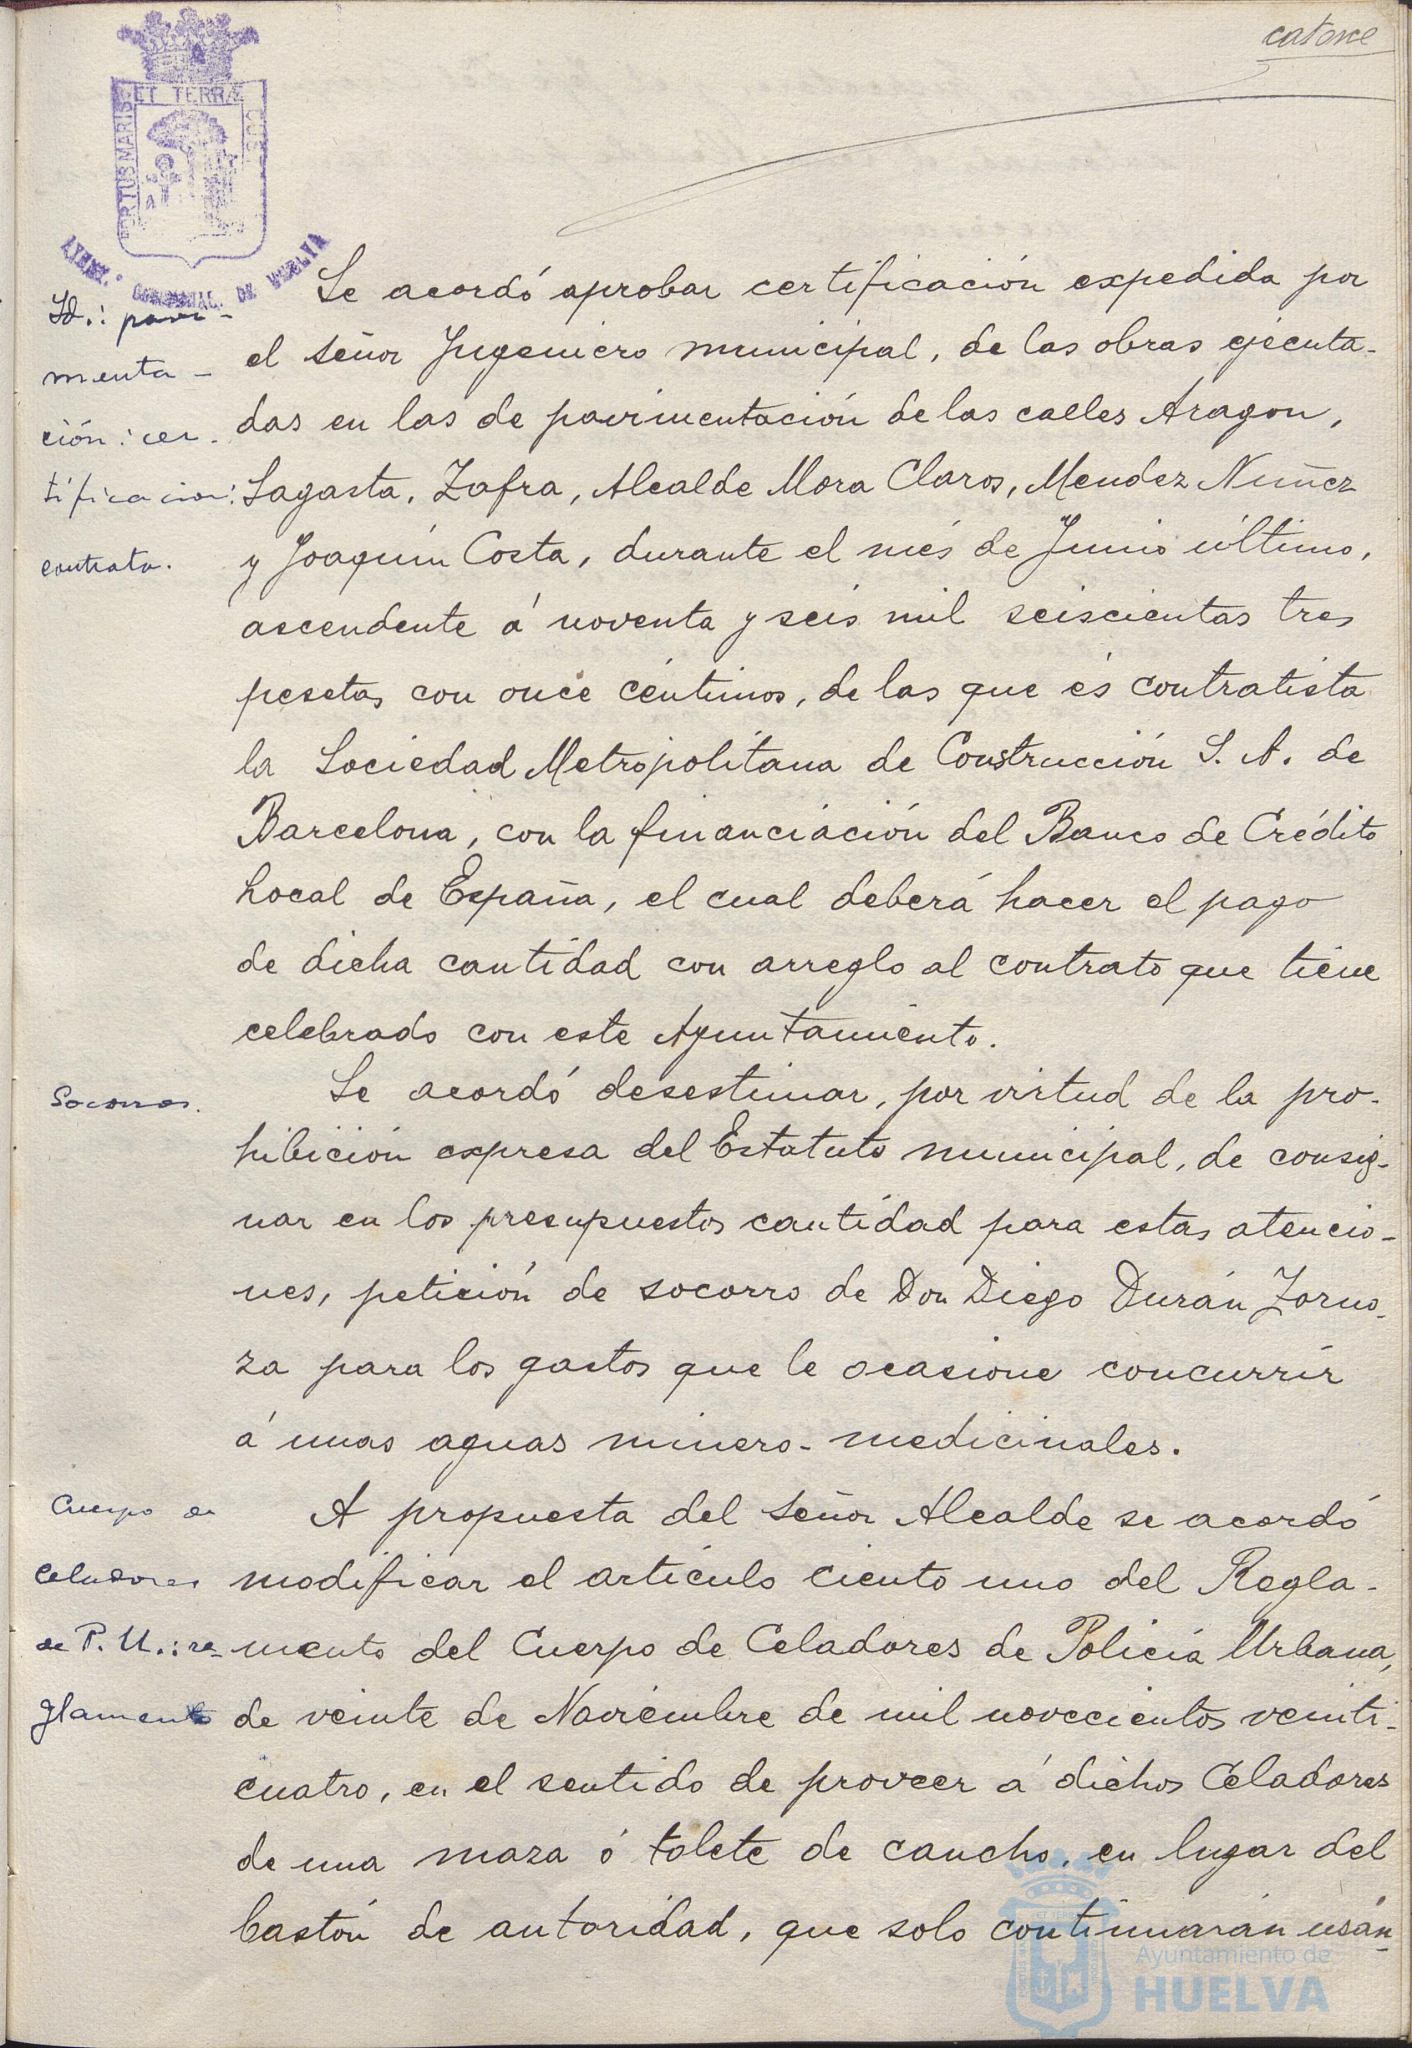 catorce
PORTUS MARIS ET TERRÆ CUSTODIA
AYUNT.º CONSTITUCIONAL DE HUELVA
Se acordó aprobar certificación expedida por
Id.: pavi-
el señor Ingeniero municipal, de las obras ejecuta-
menta-
das en las de pavimentación de las calles Aragon,
ción: cer-
Sagasta, Zafra, Alcalde Mora Claros, Mendez Nuñez
tificacion:
y Joaquín Costa, durante el més de Junio último,
contrata.
ascendente á noventa y seis mil seiscientas tres
pesetas con once céntimos, de las que és contratista
la Sociedad Metropolitana de Construcción S. A. de
Barcelona, con la financiación del Banco de Crédito
Local de España, el cual deberá hacer el pago
de dicha cantidad con arreglo al contrato que tiene
celebrado con este Ayuntamiento.
Socorros.
Se acordó desestimar, por virtud de la pro-
hibición expresa del Estatuto municipal, de consig-
nar en los presupuestos cantidad para estas atencio-
nes, petición de socorro de Don Diego Durán Zorno-
za para los gastos que le ocasione concurrir
á unas aguas minero-medicinales.
Cuerpo de
A propuesta del Señor Alcalde se acordó
Celadores
modificar el artículo ciento uno del Regla-
de P. U.: re-
mento del Cuerpo de Celadores de Policía Urbana,
glamento
de veinte de Noviembre de mil novecientos veinti-
cuatro, en el sentido de proveer á dichos Celadores
de una maza ó tolete de caucho, en lugar del
bastón de autoridad, que solo continuarán usán-
Ayuntamiento de
HUELVA